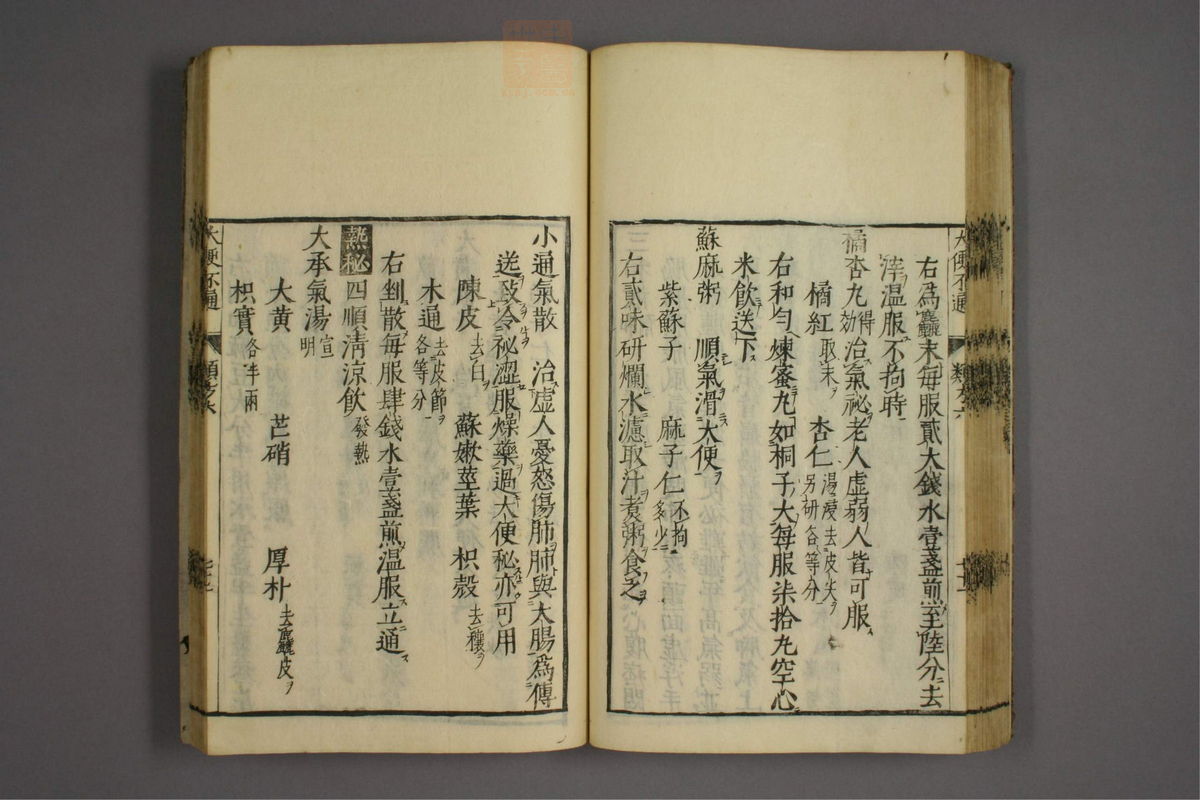 大便不通 類卷六
右為麄末每服貳大錢水壹盞煎至陸分去
滓温服不拘時
橘杏丸 得効 治氣祕老人虛弱人皆可服
橘紅 取末 杏仁 湯浸去皮尖另研各等分
右和勻煉蜜丸如桐子大每服柒拾丸空心
米飲送下
蘇麻粥 順氣滑大便
紫蘇子 麻子仁 不拘多少
右貳味研爛水濾取汁煮粥食之
小通氣散 治虛人憂怒傷肺肺與大腸為傳
送致令祕澀服燥藥過大便秘亦可用
陳皮 去白 蘇嫩莖葉 枳殼 去穰
木通 去皮節各等分
右剉散每服肆錢水壹盞煎温服立通
熱秘 四順清涼飲 發熱
大承氣湯 宣明
大黃 芒硝 厚朴 去麄皮
枳實 各半兩
大便不通 類卷六